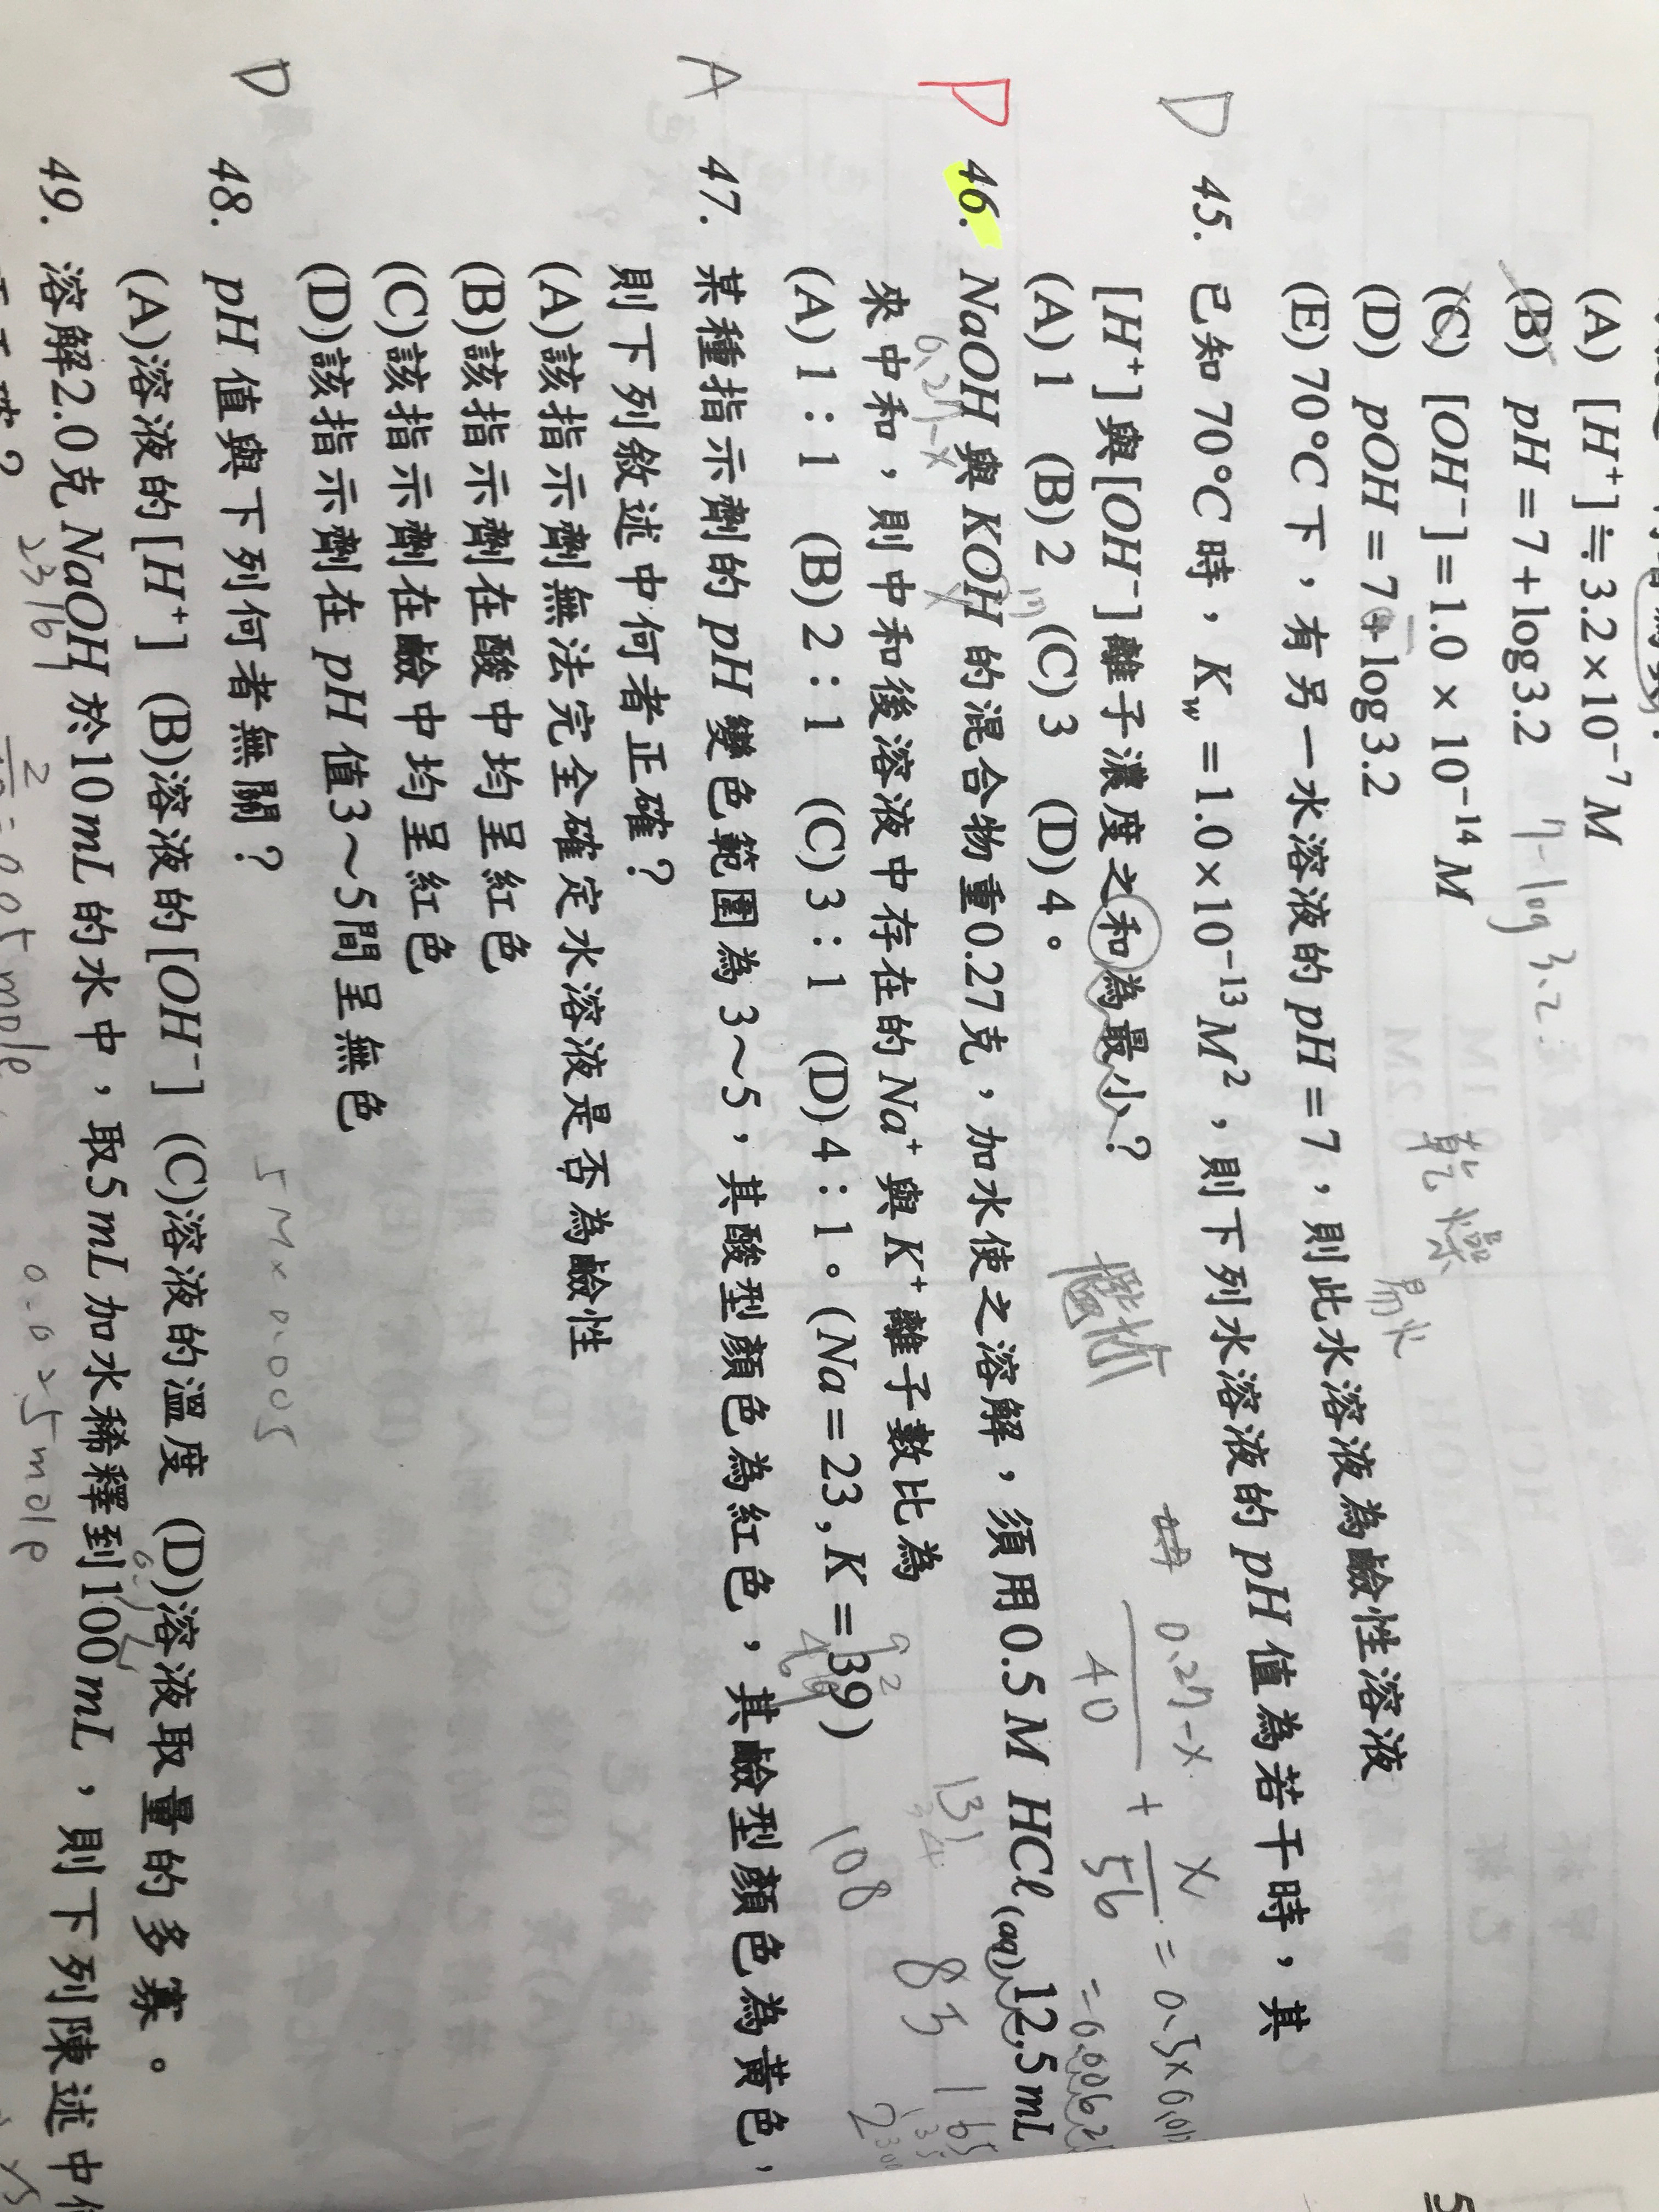 (A) [H⁺]≒3.2×10⁻⁷ M
(B) pH=7+log3.2 7-log 3.2
(C) [OH⁻]=1.0×10⁻¹⁴ M
(D) pOH=7+log3.2
乾燥
易火
(E) 70°C下，有另一水溶液的pH=7，則此水溶液為鹼性溶液
D 45. 已知70°C時，Kw=1.0×10⁻¹³M²，則下列水溶液的pH值為若干時，其
[H⁺]與[OH⁻]離子濃度之和為最小？
(A) 1 (B) 2 (C) 3 (D) 4。
0.27-x / 40 + x / 56 = 0.5×0.01
=0.00625
D 46. NaOH與KOH的混合物重0.27克，加水使之溶解，須用0.5M HCl(aq) 12.5mL
0.27-x x
131
來中和，則中和後溶液中存在的Na⁺與K⁺離子數比為
83
165
(A) 1：1 (B) 2：1 (C) 3：1 (D) 4：1。(Na=23, K=39)
108
A 47. 某種指示劑的pH變色範圍為3～5，其酸型顏色為紅色，其鹼型顏色為黃色，
則下列敘述中何者正確？
(A)該指示劑無法完全確定水溶液是否為鹼性
(B)該指示劑在酸中均呈紅色
(C)該指示劑在鹼中均呈紅色
(D)該指示劑在pH值3～5間呈無色
5M×0.005
D 48. pH值與下列何者無關？
(A)溶液的[H⁺] (B)溶液的[OH⁻] (C)溶液的溫度 (D)溶液取量的多寡。
49. 溶解2.0克NaOH於10mL的水中，取5mL加水稀釋到100mL，則下列陳述中
23 16 1
0.025mole